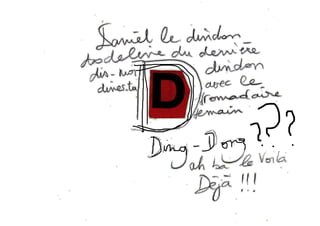 Daniel le dindon
du dernière
dis-moi dindon
avec le
D
demain ???
Ding-Dong
ah ba le voilà
Déjà !!!